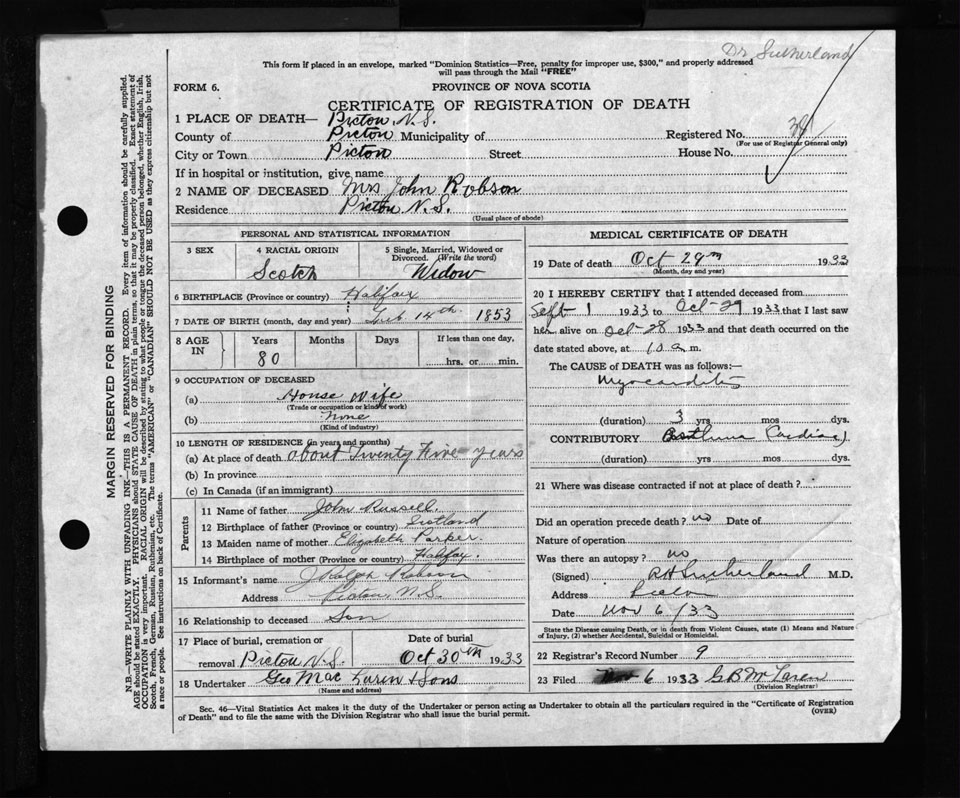 Dr Sutherland
This form if placed in an envelope, marked "Dominion Statistics—Free, penalty for improper use, $300," and properly addressed
will pass through the Mail "FREE"
FORM 6.
PROVINCE OF NOVA SCOTIA
CERTIFICATE OF REGISTRATION OF DEATH
1 PLACE OF DEATH— Pictou, N.S.
County of Pictou Municipality of Registered No.
(For use of Registrar General only)
City or Town Pictou Street House No.
If in hospital or institution, give name
2 NAME OF DECEASED Mrs John Robson
Residence Pictou N.S.
(Usual place of abode)
PERSONAL AND STATISTICAL INFORMATION
3 SEX 4 RACIAL ORIGIN 5 Single, Married, Widowed or Divorced. (Write the word)
Scotch Widow
6 BIRTHPLACE (Province or country) Halifax
7 DATE OF BIRTH (month, day and year) Feb 14th 1853
8 AGE IN Years Months Days If less than one day,
80 hrs. or min.
9 OCCUPATION OF DECEASED
(a) House Wife
(Trade or occupation or kind of work)
(b) None
(Kind of industry)
10 LENGTH OF RESIDENCE (in years and months)
(a) At place of death about Twenty Five years
(b) In province
(c) In Canada (if an immigrant)
Parents
11 Name of father John Russell.
12 Birthplace of father (Province or country) Scotland
13 Maiden name of mother Elizabeth Parker
14 Birthplace of mother (Province or country) Halifax.
15 Informant's name J Ralph Robson
Address Pictou, N.S.
16 Relationship to deceased Son
17 Place of burial, cremation or removal Pictou N.S. Date of burial Oct 30th 1933
18 Undertaker Geo MacLaren & Sons
(Name and address)
MEDICAL CERTIFICATE OF DEATH
19 Date of death Oct 29th 1933
(Month, day and year)
20 I HEREBY CERTIFY that I attended deceased from
Sept 1 1933 to Oct-29 1933 that I last saw
her alive on Oct-28 1933 and that death occurred on
date stated above, at 10 a m.
The CAUSE of DEATH was as follows:—
Myocarditis
(duration) 3 yrs mos dys.
CONTRIBUTORY Asthma (Cardiac)
(duration) yrs mos dys.
21 Where was disease contracted if not at place of death?
Did an operation precede death? no Date of
Nature of operation
Was there an autopsy? no
(Signed) R H Sutherland M.D.
Address Pictou
Date Nov 6 / 33
State the Disease causing Death, or in death from Violent Causes, state (1) Means and Nature
of Injury, (2) whether Accidental, Suicidal or Homicidal.
22 Registrar's Record Number 9
23 Filed Nov 6 1933 G B McLaren
(Division Registrar)
Sec. 46—Vital Statistics Act makes it the duty of the Undertaker or person acting as Undertaker to obtain all the particulars required in the "Certificate of Registration
of Death" and to file the same with the Division Registrar who shall issue the burial permit.
(OVER)
MARGIN RESERVED FOR BINDING
N.B.—WRITE PLAINLY WITH UNFADING INK—THIS IS A PERMANENT RECORD. Every item of information should be carefully supplied.
AGE should be stated EXACTLY. PHYSICIANS should STATE CAUSE OF DEATH in plain terms, so that it may be properly classified. Exact statement of
OCCUPATION is very important. RACIAL ORIGIN will be described by stating to what people or tongue the deceased person belonged, whether English, Irish,
Scotch, French, German, Russian, Ruthenian, etc. The terms "AMERICAN" or "CANADIAN" SHOULD NOT BE USED as they express citizenship but not
a race or people. See instructions on back of Certificate.